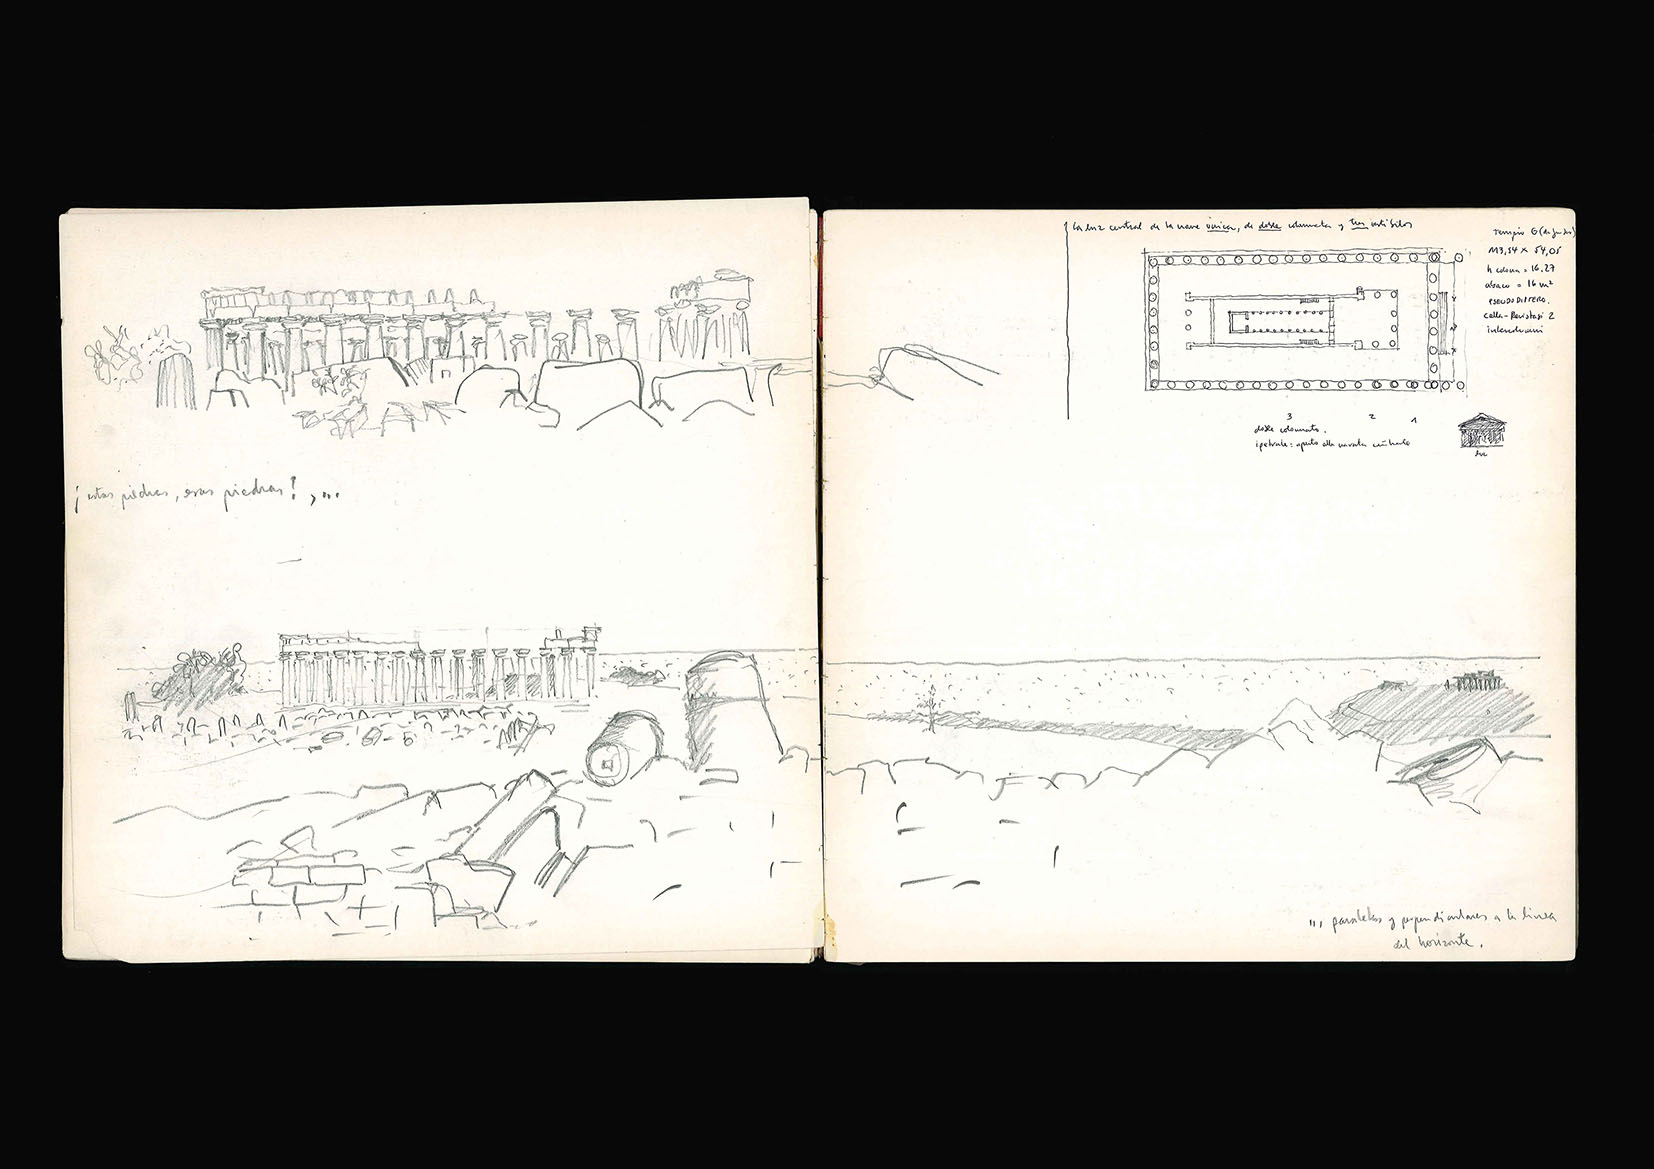 ¡estas piedras, esas piedras!, ...
La luz central de la nave única, de doble columnata y tres
Tempio G
113,54 × 54,05
h colonna = 16.27
abaco = 16 m²
PSEUDODITTERO.
cella - 2
intercolumni
3 2 1
doble columnata.
ipetrale: aperto alla navata centrale
luz
... paralelas y perpendiculares a la línea
del horizonte.